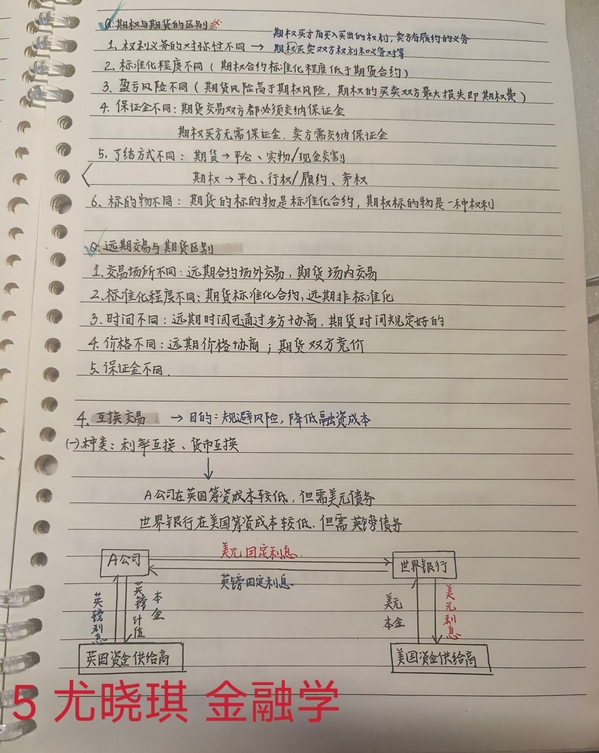 Q: 期权与期货的区别
期权买方有买入卖出的权利，卖方有履约的义务
1、权利义务的对称性不同 → 期权买卖双方权利和义务对等
2、标准化程度不同（期权合约标准化程度低于期货合约）
3、盈亏风险不同（期货风险高于期权风险，期权的买卖双方最大损失即期权费）
4、保证金不同：期货交易双方都必须交纳保证金
期权买方无需保证金、卖方需交纳保证金
5、了结方式不同：期货→平仓、实物/现金交割
期权→平仓、行权/履约、弃权
6、标的物不同：期货的标的物是标准化合约，期权标的物是一种权利
Q: 远期交易与期货区别
1、交易场所不同：远期合约场外交易，期货场内交易
2、标准化程度不同：期货标准化合约，远期非标准化
3、时间不同：远期时间可通过多方协商，期货时间规定好的
4、价格不同：远期价格协商；期货双方竞价
5、保证金不同．
4、互换交易 → 目的：规避风险，降低融资成本
(一)种类：利率互换、货币互换
A公司在英国筹资成本较低，但需美元债务
世界银行在美国筹资成本较低、但需英镑债务
A公司
美元固定利息
英镑固定利息
世界银行
英镑利息
英镑计值
本金
美元本金
美元利息
英国资金供给商
美国资金供给商
5 尤晓琪 金融学